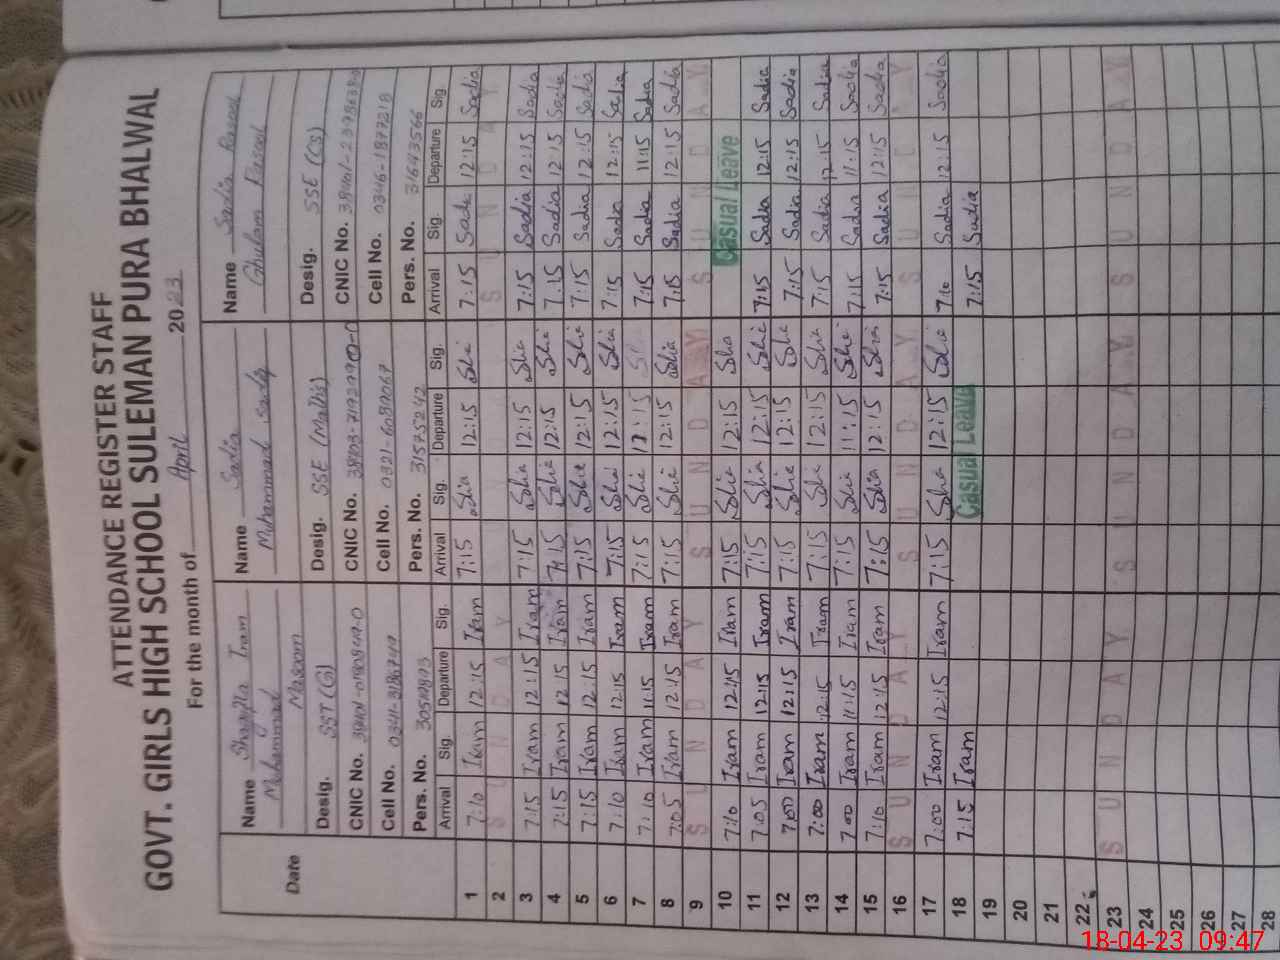 ATTENDANCE REGISTER STAFF
GOVT. GIRLS HIGH SCHOOL SULEMAN PURA BHALWAL
For the month of April 2023
Date
Name Shagufta Iram Name Sadia Name Sadia Rasool
Muhammad Masoom Muhammad Sadiq Ghulam Rasool
Desig. SST (G) Desig. SSE (Maths) Desig. SSE (CS)
CNIC No. CNIC No. CNIC No.
Cell No. Cell No. 0321-6089067 Cell No. 0346-1877218
Pers. No. Pers. No. 31575242 Pers. No. 31693566
Arrival Sig. Departure Sig. Arrival Sig. Departure Sig. Arrival Sig. Departure Sig.
1 7:10 Iram 12:15 Iram 7:15 Slia 12:15 Slia 7:15 Sadia 12:15 Sadia
2 SUNDAY
3 7:15 Iram 12:15 Iram 7:15 Slia 12:15 Slia 7:15 Sadia 12:15 Sadia
4 7:15 Iram 12:15 Iram 7:15 Slia 12:15 Slia 7:15 Sadia 12:15 Sadia
5 7:15 Iram 12:15 Iram 7:15 Slia 12:15 Slia 7:15 Sadia 12:15 Sadia
6 7:10 Iram 12:15 Iram 7:15 Slia 12:15 Slia 7:15 Sadia 12:15 Sadia
7 7:10 Iram 11:15 Iram 7:15 Slia 11:15 7:15 Sadia 11:15 Sadia
8 7:05 Iram 12:15 Iram 7:15 Slia 12:15 Slia 7:15 Sadia 12:15 Sadia
9 SUNDAY SUNDAY SUNDAY
10 7:10 Iram 12:15 Iram 7:15 Slia 12:15 Slia Casual Leave
11 7:05 Iram 12:15 Iram 7:15 Slia 12:15 Slia 7:15 Sadia 12:15 Sadia
12 7:00 Iram 12:15 Iram 7:15 Slia 12:15 Slia 7:15 Sadia 12:15 Sadia
13 7:00 Iram 12:15 Iram 7:15 Slia 12:15 Slia 7:15 Sadia 12:15 Sadia
14 7:00 Iram 11:15 Iram 7:15 Slia 11:15 Slia 7:15 Sadia 11:15 Sadia
15 7:10 Iram 12:15 Iram 7:15 Slia 12:15 Slia 7:15 Sadia 12:15 Sadia
16 SUNDAY SUNDAY SUNDAY
17 7:00 Iram 12:15 Iram 7:15 Slia 12:15 Slia 7:10 Sadia 12:15 Sadia
18 7:15 Iram Casual Leave 7:15 Sadia
19
20
21
22
23 SUNDAY SUNDAY SUNDAY
24
25
26
27
28
18-04-23 09:47